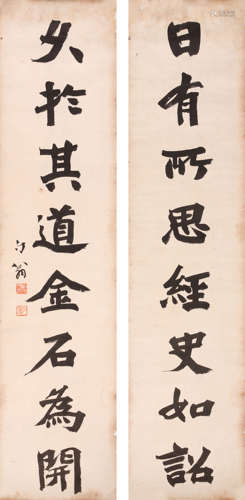 日有所思經史如詔
久於其道金石為開
翁